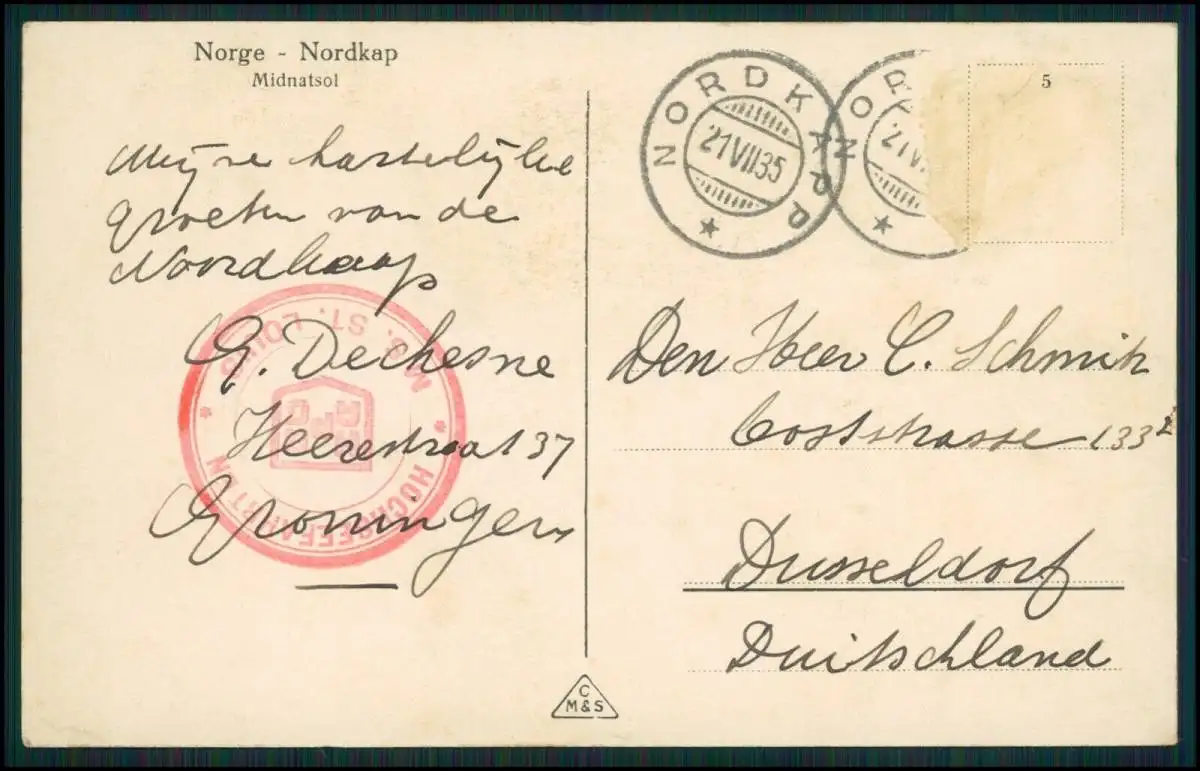 Norge - Nordkap
Midnatsol
Mijne hartelijke
groeten van de
Noordkaap
G. Dechesne
Heerestraat 37
Groningen
M.S. ST. LOUIS
* HOCHSEEFAHRTEN *
NORDKAPP
21 VII 35
NOR
21 V
5
Den Heer C. Schmitz
Coststrasse 133 2
Dusseldorf
Duitschland
C
M&S